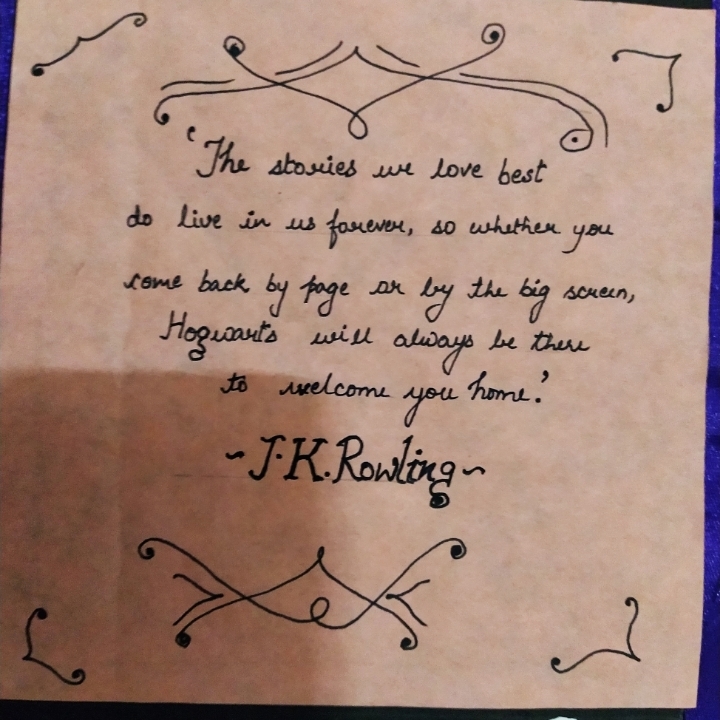 'The stories we love best
do live in us forever, so whether you
come back by page or by the big screen,
Hogwarts will always be there
to welcome you home.'
~J.K.Rowling~